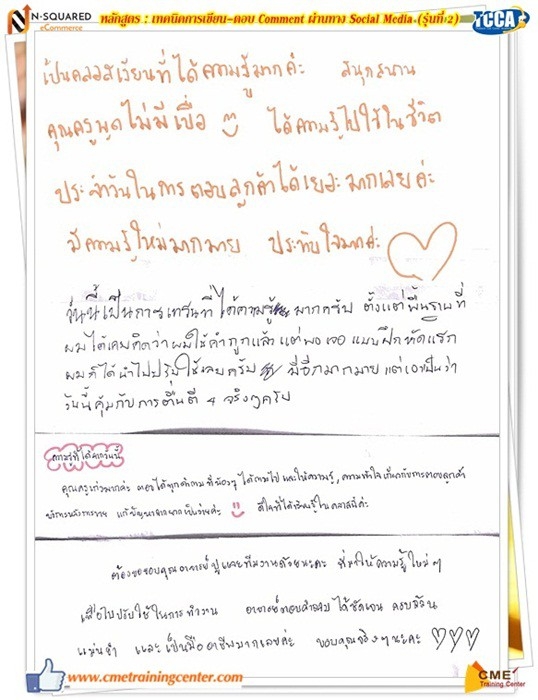 N-SQUARED
eCommerce
หลักสูตร : เทคนิคการเขียน-ตอบ Comment ผ่านทาง Social Media (รุ่นที่ 2)
TCCA
เป็นคลอสเรียนที่ได้ความรู้มากค่ะ สนุกสนาน
คุณครูพูดไม่มีเบื่อ ได้ความรู้ไปใช้ในชีวิต
ประจำวันในการตอบลูกค้าได้เยอะมากเลยค่ะ
มีความรู้ใหม่มากมาย ประทับใจมากค่ะ
วันนี้เป็นการเทรนที่ได้ความรู้ มากครับ ตั้งแต่พื้นฐานที่
ผมได้เคยคิดว่าผมใช้คำถูกแล้ว แต่พอเจอ แบบฝึกหัดแรก
ผมก็ได้นำไปปรับใช้เลยครับ มีอีกมากมาย แต่เอาเป็นว่า
วันนี้คุ้มกับการตื่นตี 4 จริงๆครับ
ความรู้ที่ได้จากวันนี้
คุณครูเก่งมากค่ะ ตอบได้ทุกคำถามที่น้องๆ ได้ถามไป และให้ความรู้, ความเข้าใจเกี่ยวกับการตอบลูกค้า
ดีใจที่ได้เรียนรู้ในคลาสนี้ค่ะ
ต้องขอขอบคุณอาจารย์ปูและทีมงานด้วยนะคะ ที่มาให้ความรู้ใหม่ๆ
เพื่อไปปรับใช้ในการทำงาน อาจารย์ตอบคำถามได้ชัดเจน ครบถ้วน
แม่นยำ และเป็นมืออาชีพมากเลยค่ะ ขอบคุณจริงๆนะคะ
www.cmetrainingcenter.com
CME
Training Center